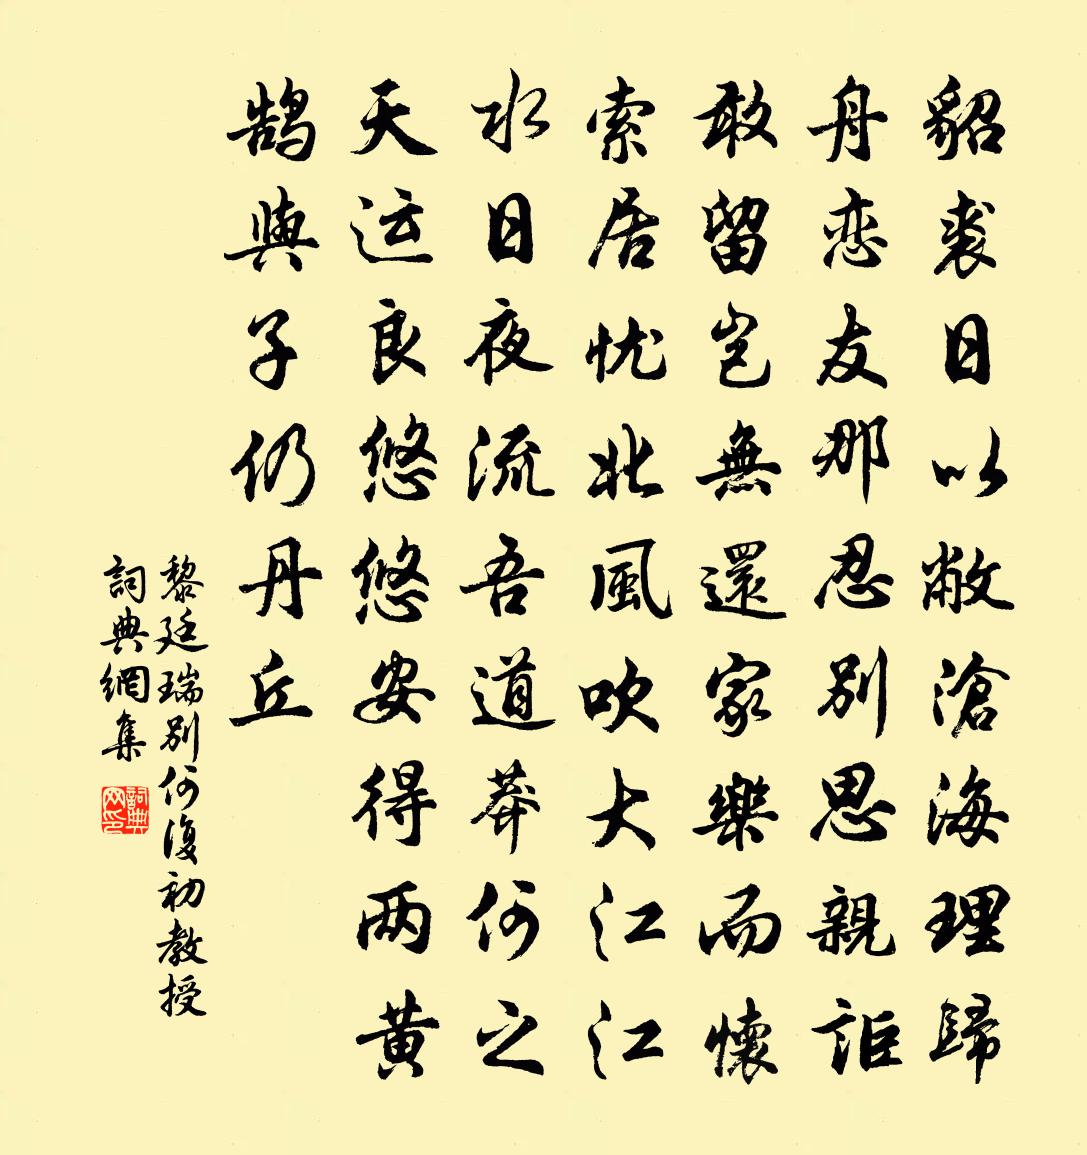 貂裘日以敝滄海理歸
舟恋友那忍别思親詎
敢留豈無還家樂而懷
索居忧北風吹大江江
水日夜流吾道莽何之
天运良悠悠安得两黄
鹄與子仍丹丘
黎廷瑞别何復初教授
詞典網集
詞典网印